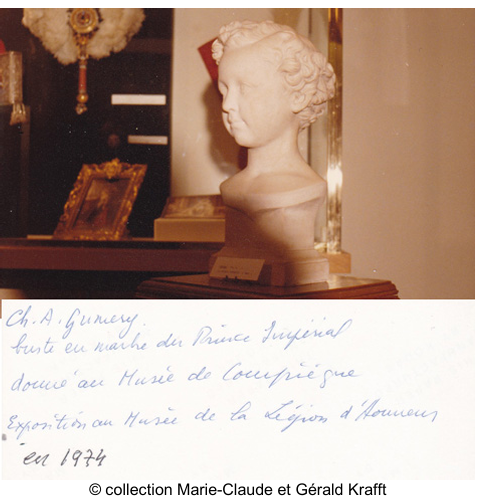 Ch. A. Gumery.
buste en marbre du Prince Impérial
donné au Musée de Compiègne
Exposition au Musée de la Légion d'Honneur
en 1974
© collection Marie-Claude et Gérald Krafft